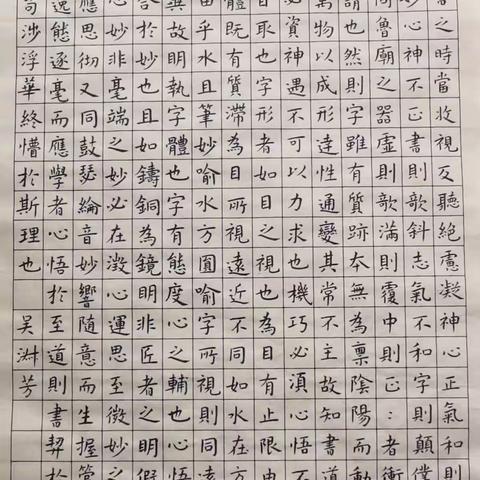 之時當收視反聽絕慮凝神心正氣和則
妙心神不正書則歌斜志氣不和字則顛僕
魯廟之器虛則歌滿則覆中則正:者衝
謂也然則字雖有質跡本無為稟陰陽而動
萬物以成形達性通變其常不主故知書道
資神遇不可以力求也機巧必須心悟不
取也字形者如目之視也為目有止限由
體既有質滯為目所視遠近不同如水在方
由乎水且筆妙喻水方圓喻字所視則同遠
與故明執字體也字有態度心之輔也心悟
合於妙也且如鑄銅為鏡明非匠者之明假
心妙非毫端之妙必在澂心運思至微妙之
應思徹又同鼓瑟綸音妙響隨意而生握管
逸態逐毫而應學者心悟於至道則書契於
苟涉浮華終懵於斯理也 吳淑芳